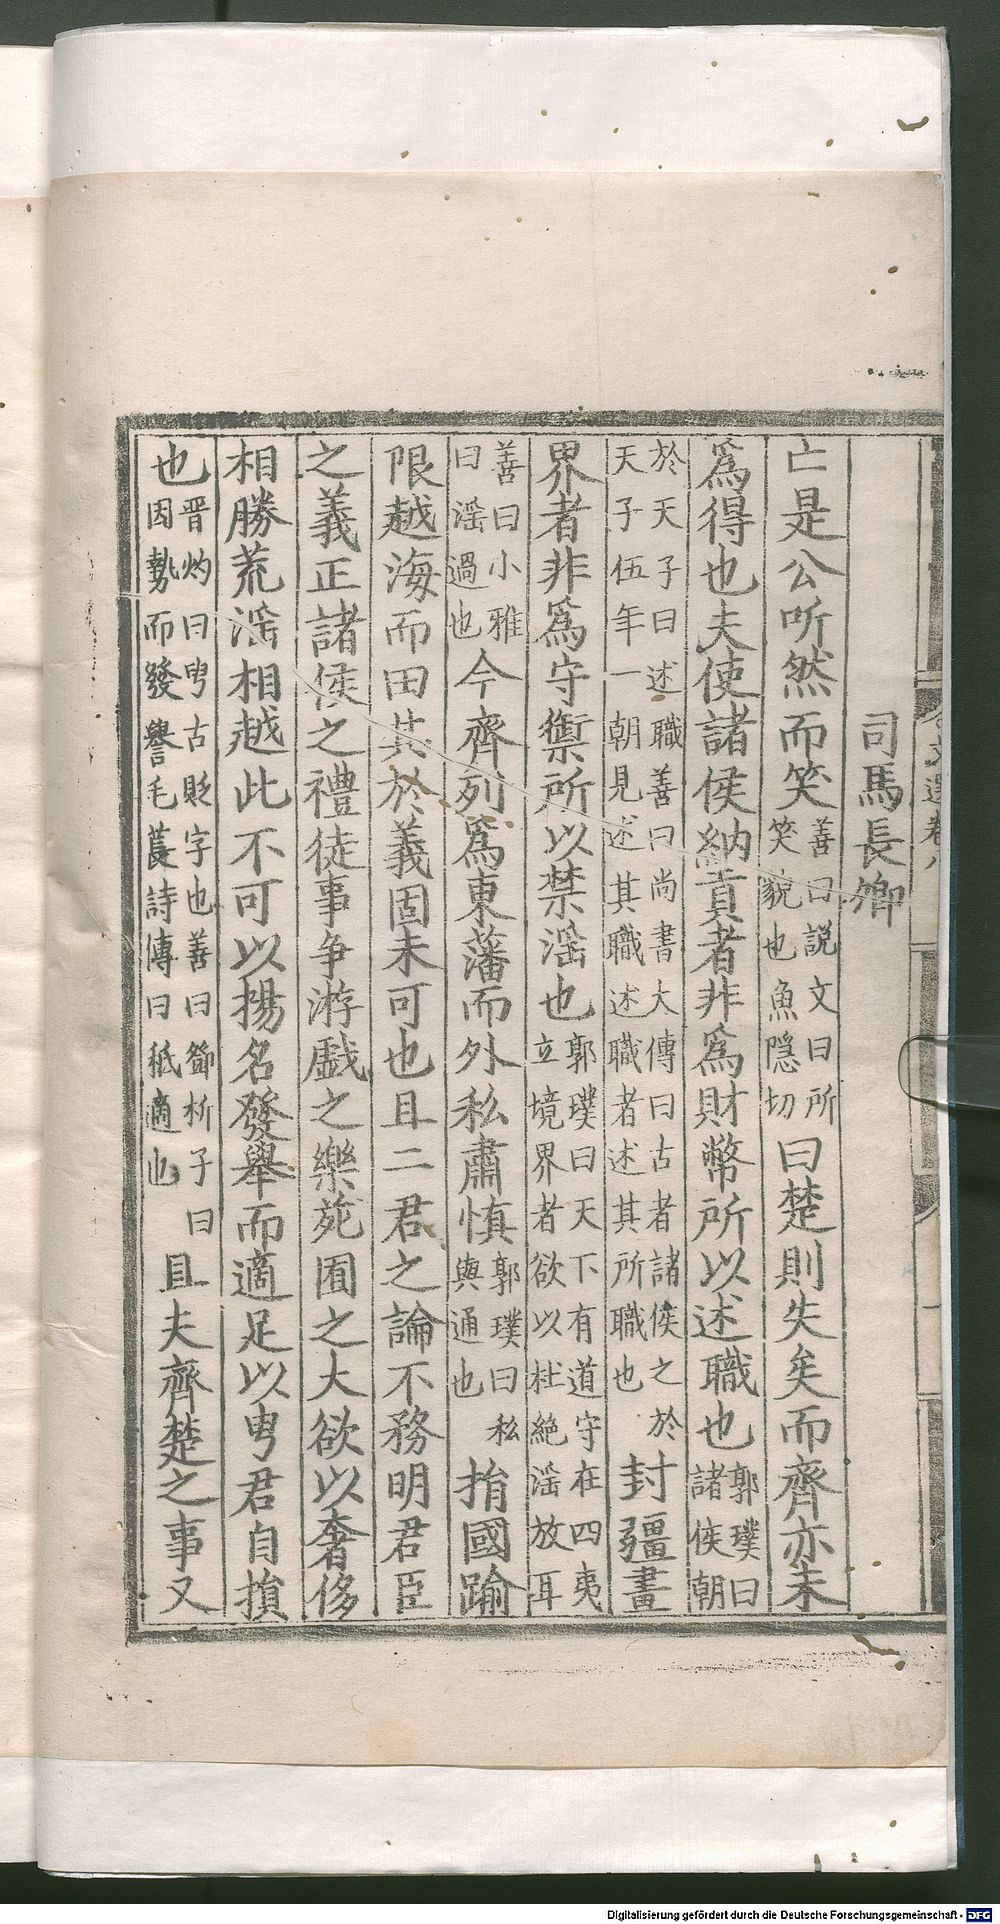 司馬長卿
亡是公听然而笑
善曰説文曰所
笑貌也魚隱切
曰楚則失矣而齊亦未
爲得也夫使諸侯納貢者非爲財幣所以述職也
郭璞曰
諸侯朝
於天子曰述職善曰尚書大傳曰古者諸侯之於
天子伍年一朝見述其職述職者述其所職也
封疆畫
界者非爲守禦所以禁淫也
郭璞曰天下有道守在四夷
立境界者欲以杜絶淫放耳
善曰小雅
曰淫過也
今齊列爲東藩而外私肅慎
郭璞曰私
與通也
捐國踰
限越海而田其於義固未可也且二君之論不務明君臣
之義正諸侯之禮徒事争游戲之樂苑囿之大欲以奢侈
相勝荒淫相越此不可以揚名發舉而適足以甹君自損
也
晋灼曰甹古貶字也善曰鄧析子曰
因勢而發譽毛萇詩傳曰祗適也
且夫齊楚之事又
Digitalisierung gefördert durch die Deutsche Forschungsgemeinschaft - DFG